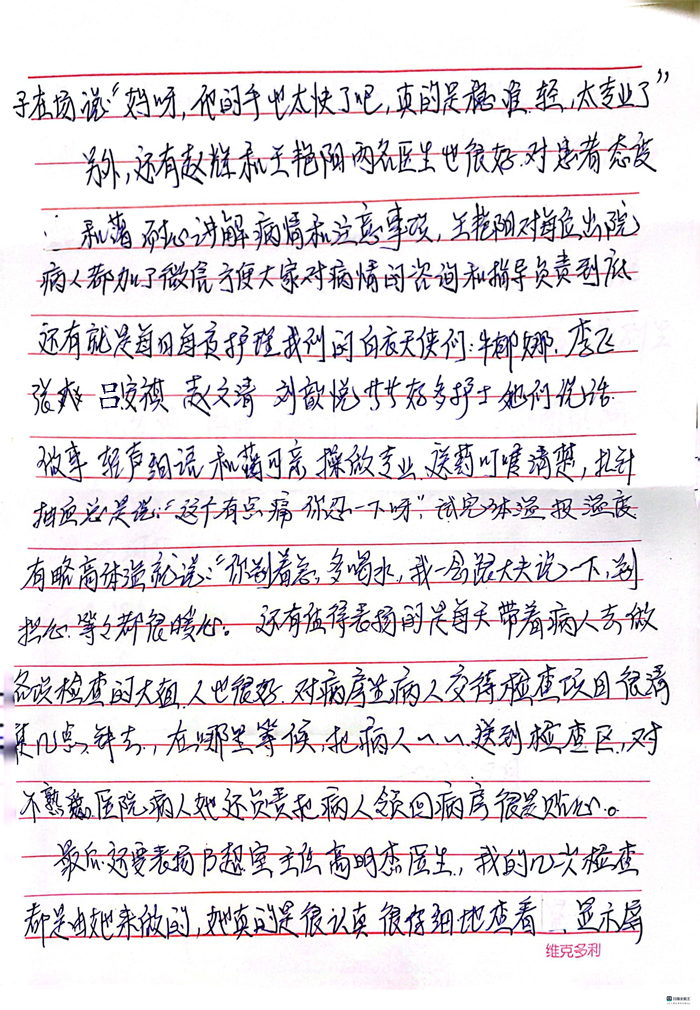 子在场说“妈呀,他的手也太快了吧,真的是稳准轻,太专业了”
另外,还有赵辉和王艳阳两名医生也很好.对患者态度
和蔼 耐心讲解病情和注意事项,王艳阳对每位出院
病人都加了微信方便大家对病情的咨询和指导负责到底
还有就是每日每夜护理我们的白衣天使们:牛娜娜.李飞
张爽 吕安祺 赵文清 刘歆悦 等好多护士她们说话.
做事 轻声细语 和蔼可亲 操做专业.送药叮嘱清楚,扎针
抽血总是说:“这个有点痛 你忍一下呀”.试完体温 报温度
有略高体温就说:“你别着急,多喝水,我一会跟大夫说一下,别
担心.等等都很暖心。还有值得表扬的是每天带着病人去做
各项检查的大姐.人也很好.对病房里病人交待检查项目很清
几点钟去.,在哪里等候,把病人一个一个送到检查区,对
不熟悉医院病人她还负责把病人领回病房很是贴心。
最后还要表扬B超室主任高明杰医生,我的几次检查
都是由她来做的,她真的是很认真很仔细地查看 显示屏
维克多利